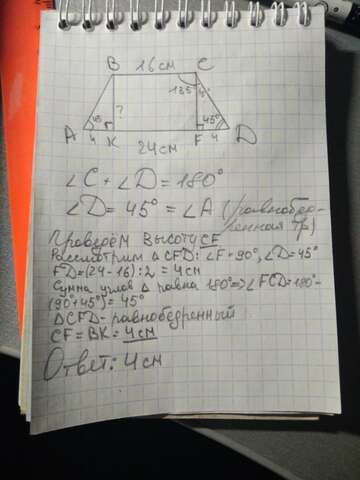 B 16см C
135°
45° ? 45°
A 4 K 24см F 4 D
∠C + ∠D = 180°
∠D = 45° = ∠A (равнобед-
ренная тр)
Проведём высоту CF
Рассмотрим △CFD: ∠F = 90°, ∠D = 45°
FD = (24 - 16) : 2 = 4см
Сумма углов △ равна 180° => ∠FCD = 180° -
(90° + 45°) = 45°
△CFD - равнобедренный
CF = BK = 4см
Ответ: 4см